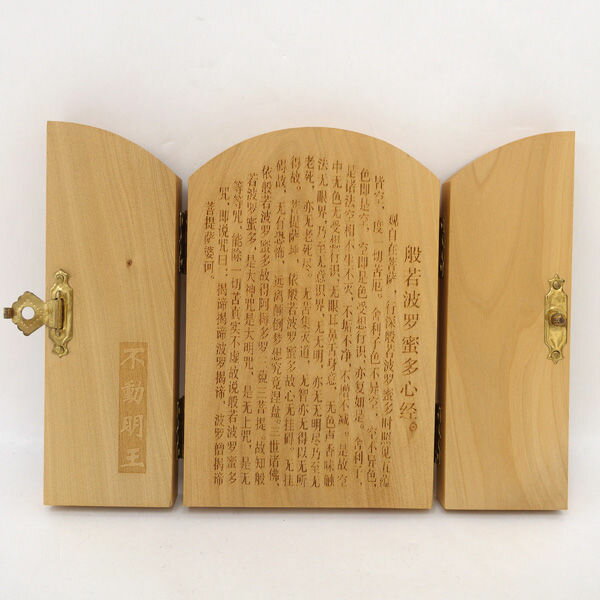 般若波罗蜜多心经。
观自在菩萨，行深般若波罗蜜多时照见五蕴
皆空，度一切苦厄。舍利子色不异空，空不异色，
色即是空，空即是色受想行识，亦复如是。舍利子，
是诸法空相不生不灭，不垢不净，不增不减。是故空
中无色无受想行识，无眼耳鼻舌身意，无色声香味触
法无眼界，乃至无意识界，无无明，亦无无明尽乃至无
老死，亦无老死尽，无苦集灭道，无智亦无得以无所
得故。菩提萨埵，依般若波罗蜜多故心无挂碍，无挂
碍故，无有恐怖，远离颠倒梦想究竟涅盘。三世诸佛，
依般若波罗蜜多故得阿耨多罗三藐三菩提，故知般
若波罗蜜多，是大神咒是大明咒，是无上咒，是无
等等咒，能除一切苦真实不虚故说般若波罗蜜多
咒，即说咒曰，揭谛揭谛波罗揭谛，波罗僧揭谛
菩提萨婆诃。
不動明王